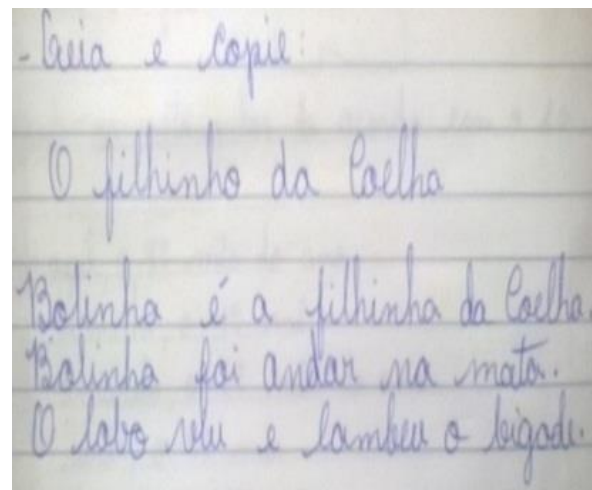 - Leia e copie:
O filhinho da Coelha
Bolinha é a filhinha da Coelha.
Bolinha foi andar na mata.
O lobo veu e lambeu o bigode.